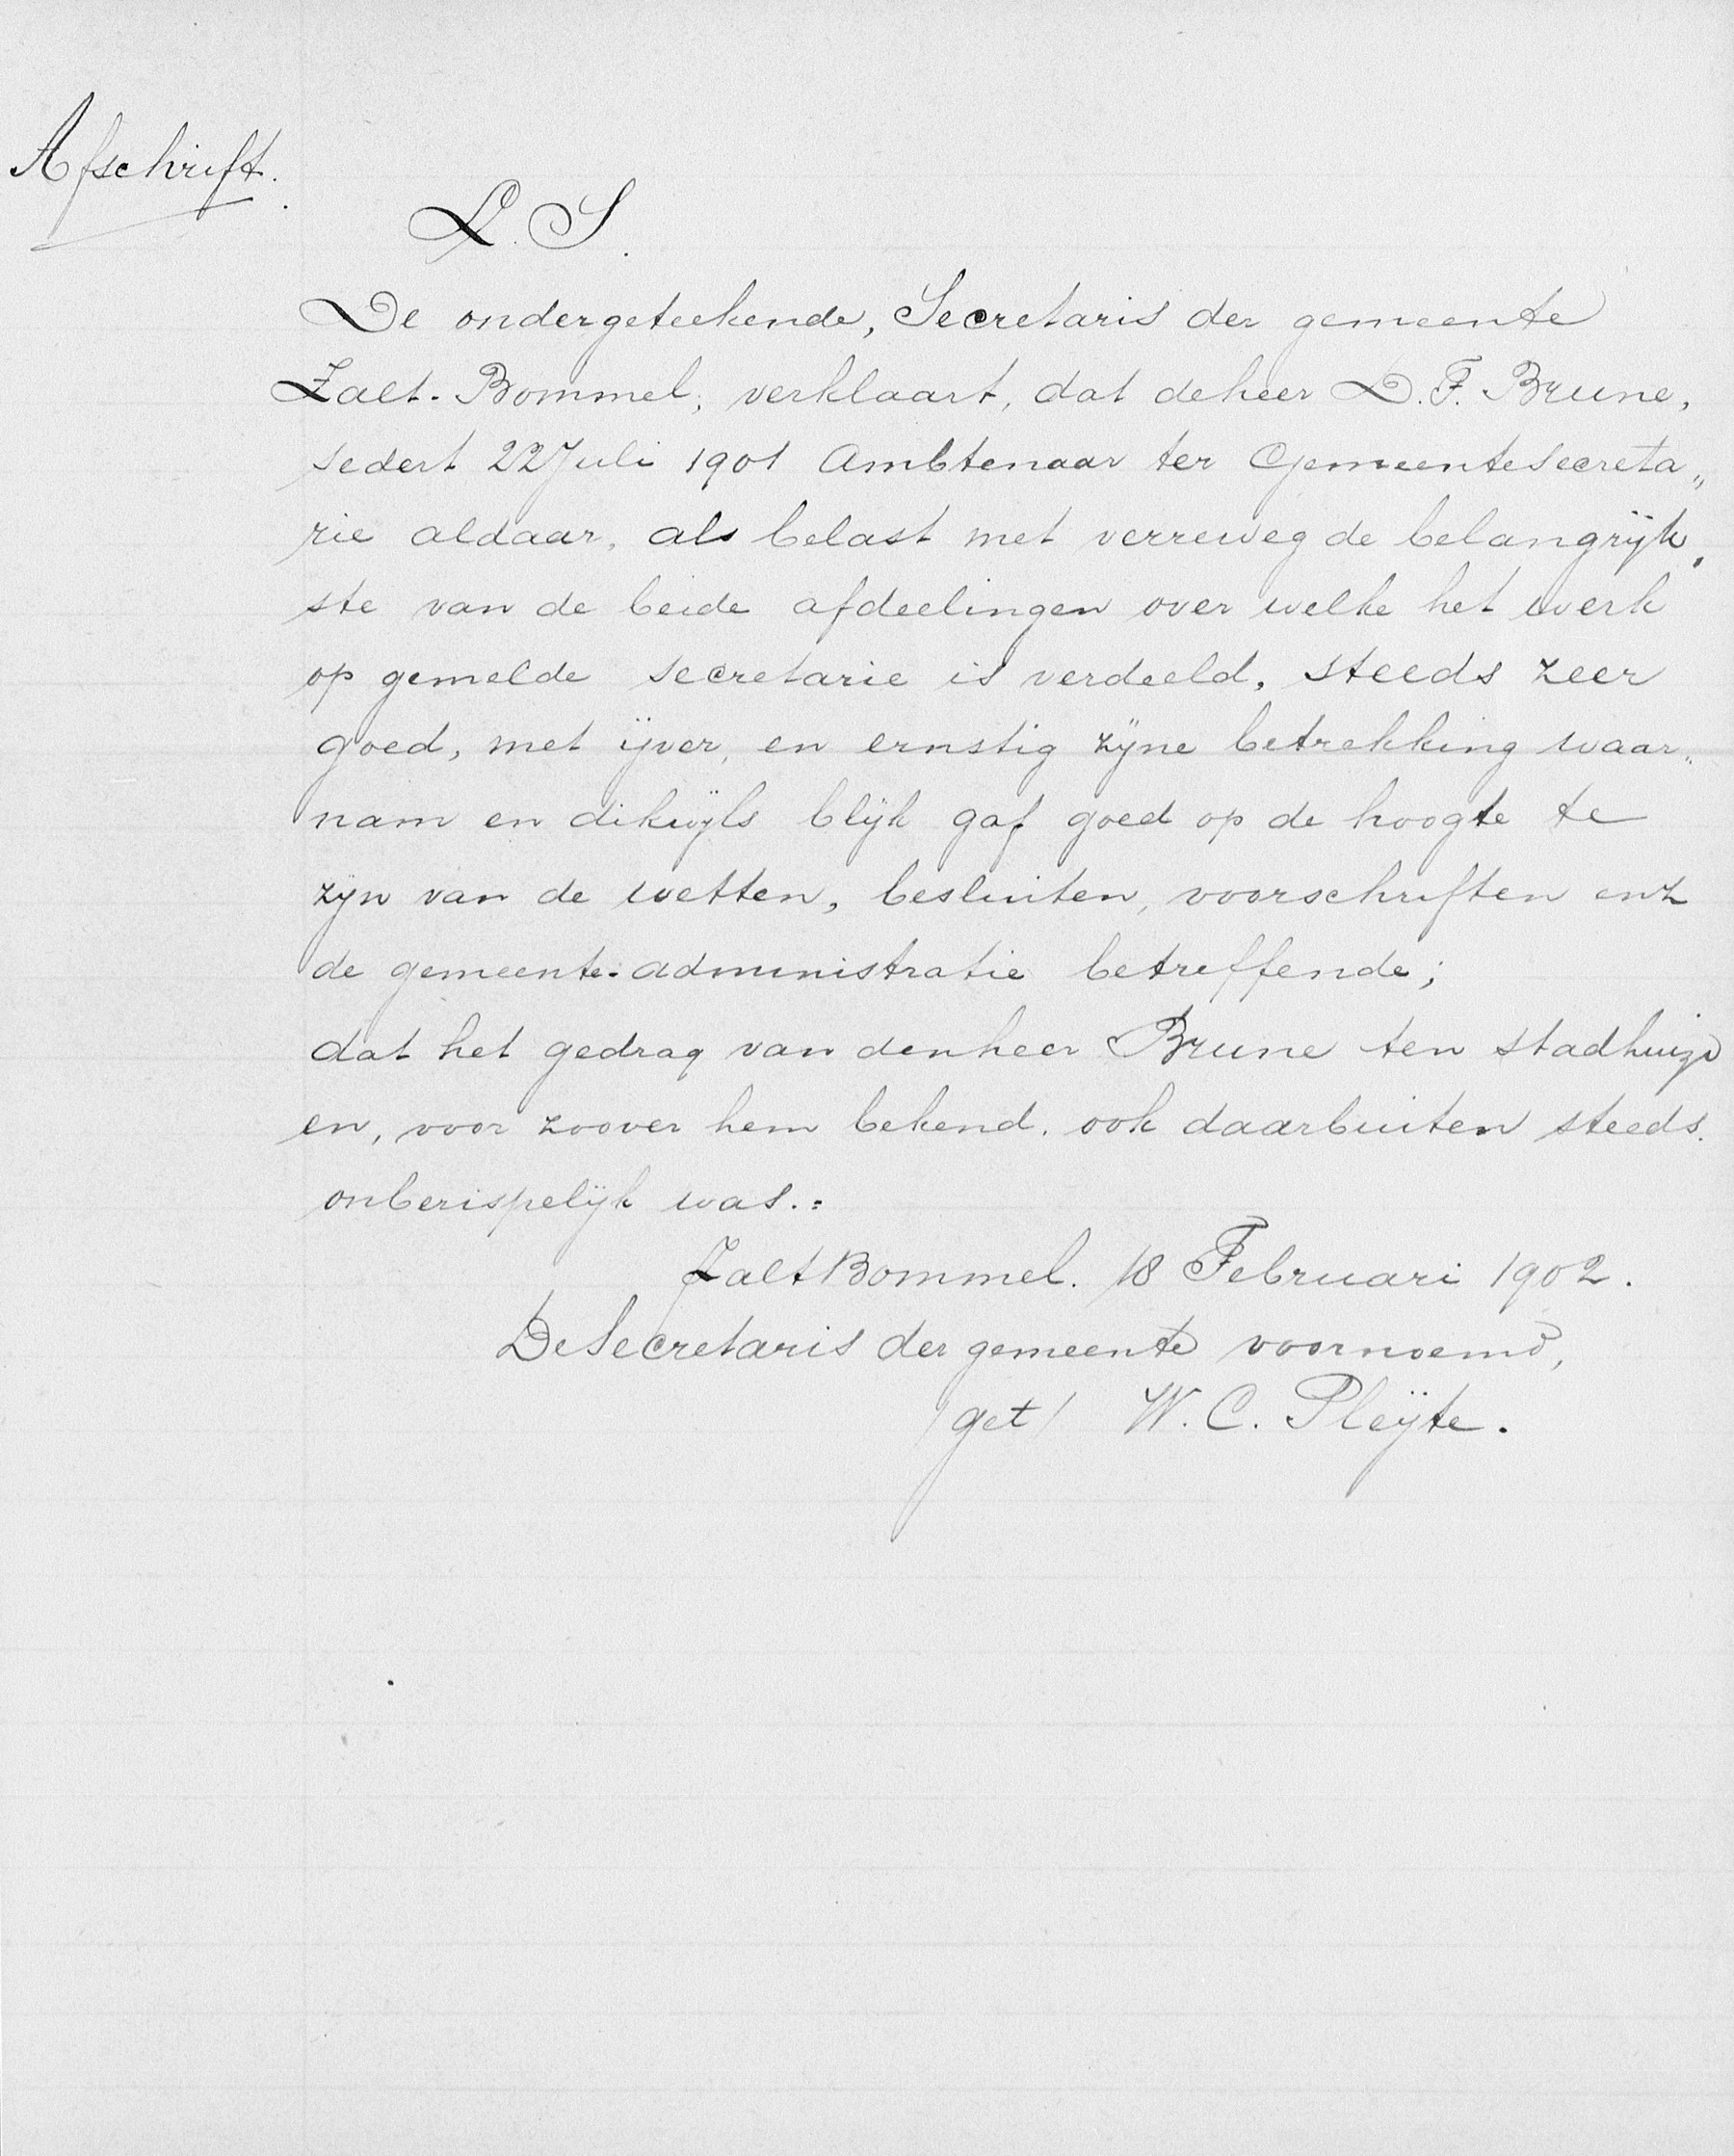 Afschrift.
L. S.
De ondergeteekende, Secretaris der gemeente
Zalt-Bommel, verklaart, dat de heer D. F. Brune,
sedert 22 Juli 1901 Ambtenaar ter Gemeentesecreta„
rie aldaar, als belast met verreweg de belangrijk„
ste van de beide afdeelingen over welke het werk
op gemelde secretarie is verdeeld, steeds zeer
goed, met ijver, en ernstig zijne betrekking waar„
nam en dikwijls blijk gaf goed op de hoogte te
zijn van de wetten, besluiten, voorschriften enz
de gemeente-administratie betreffende;
dat het gedrag van den heer Brune ten stadhuize
en, voor zoover hem bekend, ook daarbuiten steeds.
onberispelijk was.=
ZaltBommel. 18 Februari 1902.
De Secretaris der gemeente voornoemd,
/get/ W. C. Pleijte.